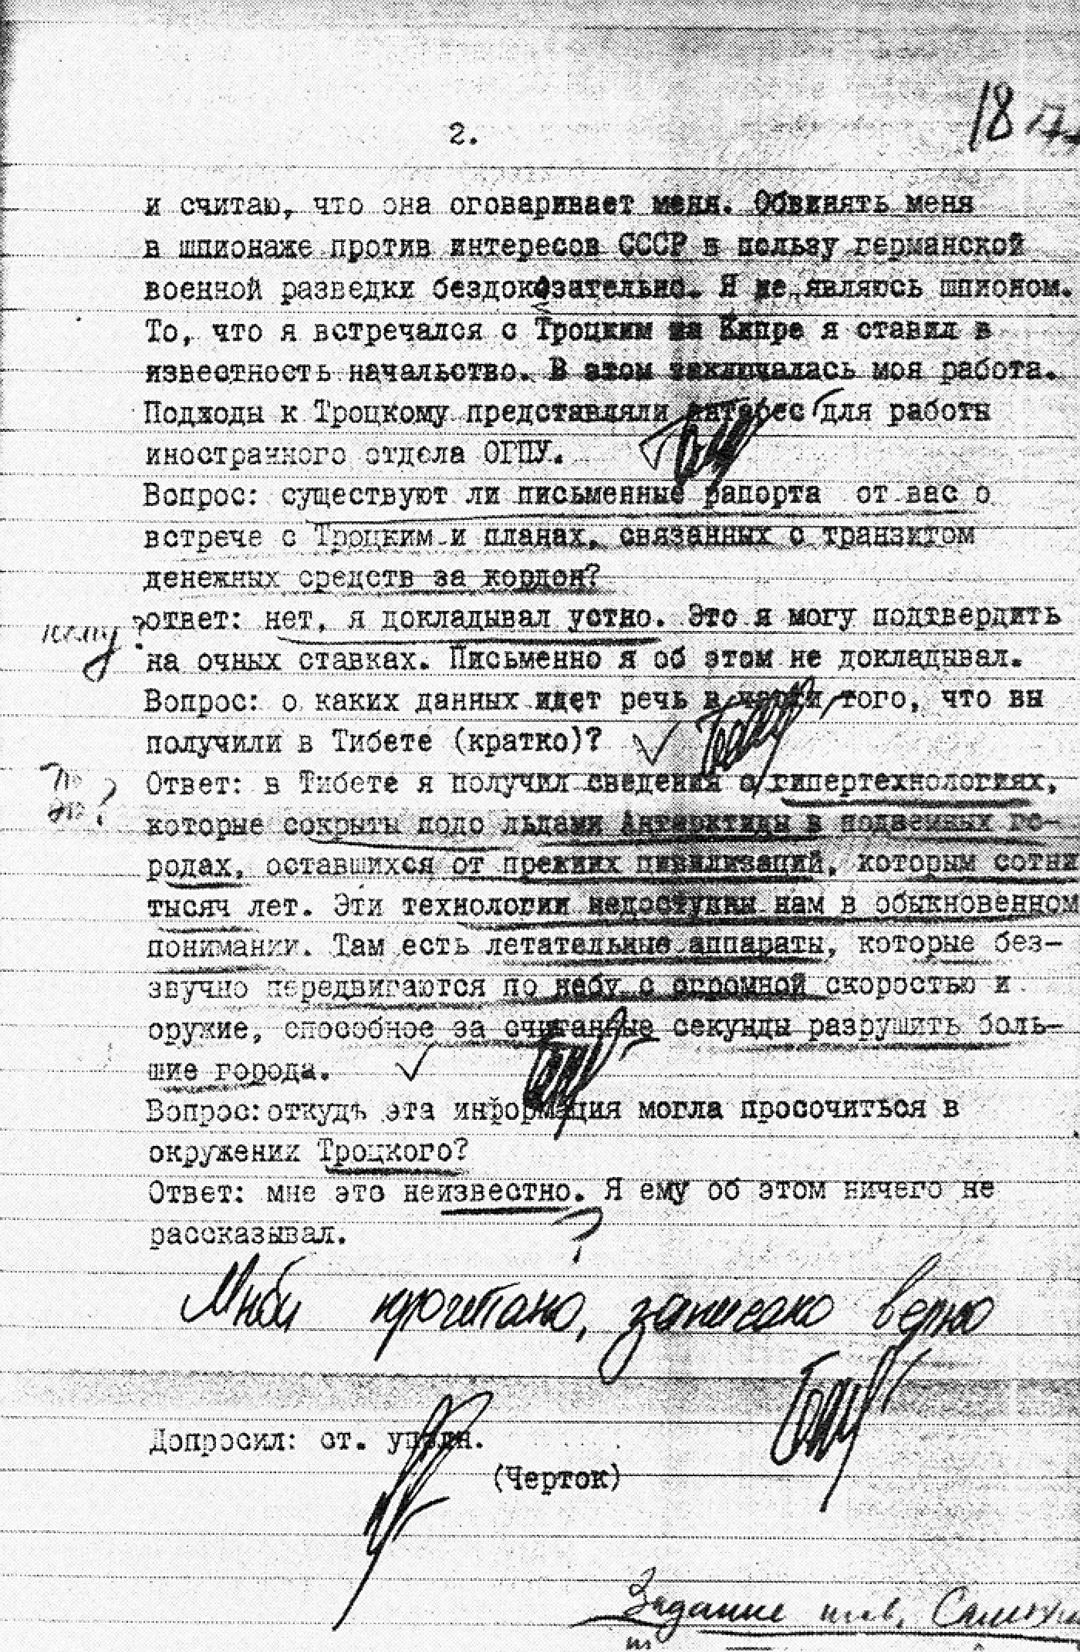 2.
и считаю, что она оговаривает меня. Обвинять меня
в шпионаже против интересов СССР в пользу германской
военной разведки бездоказательно. Я не являюсь шпионом.
То, что я встречался с Троцким на Кипре я ставил в
известность начальство. В этом заключалась моя работа.
Подходы к Троцкому представляли интерес для работы
иностранного отдела ОГПУ.
Вопрос: существуют ли письменные рапорта от вас о
встрече с Троцким и планах, связанных с транзитом
денежных средств за кордон?
кому?
ответ: нет, я докладывал устно. Это я могу подтвердить
на очных ставках. Письменно я об этом не докладывал.
Вопрос: о каких данных идет речь в части того, что вы
получили в Тибете (кратко)?
Ответ: в Тибете я получил сведения о гипертехнологиях,
которые сокрыты подо льдами Антарктиды в подземных го-
родах, оставшихся от прежних цивилизаций, которым сотни
тысяч лет. Эти технологии недоступны нам в обыкновенном
понимании. Там есть летательные аппараты, которые без-
звучно передвигаются по небу с огромной скоростью и
оружие, способное за считанные секунды разрушить боль-
шие города.
Вопрос:откудь эта информация могла просочиться в
окружении Троцкого?
Ответ: мне это неизвестно. Я ему об этом ничего не
рассказывал.
?
прочитано, записано верно
Допросил: от. уполн.
(Черток)
Задание тов.